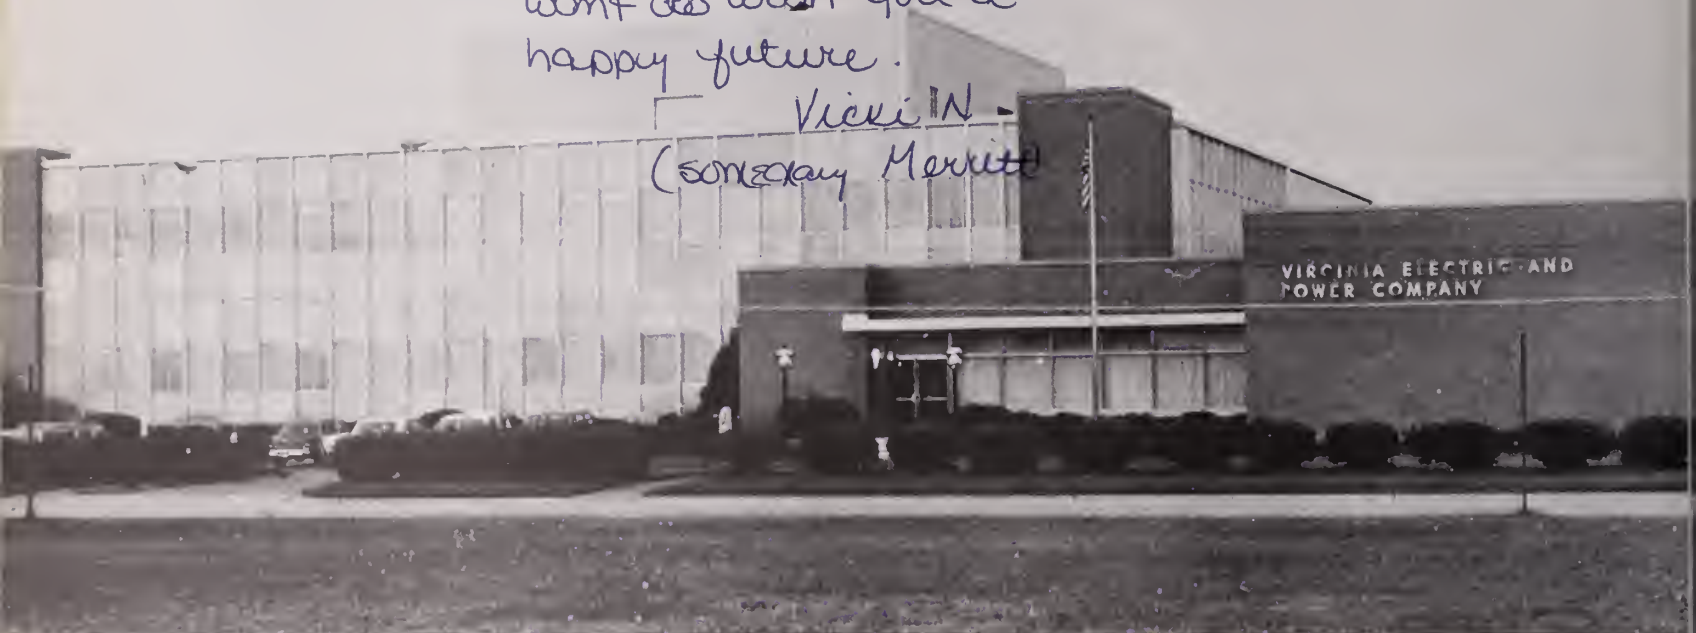 you a
happy future.
Vicki N
(someday Merritt
VIRGINIA ELECTRIC AND
POWER COMPANY